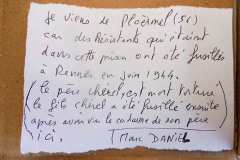 Je viens de Ploërmel (56)
car des Résistants qui étaient
dans cette prison ont été fusillés
à Rennes en juin 1944.
(le père chérel, est mort torturé
le fils chérel a été fusillé ensuite
après avoir vu le cadavre de son père)
ici.
Marc DANIEL